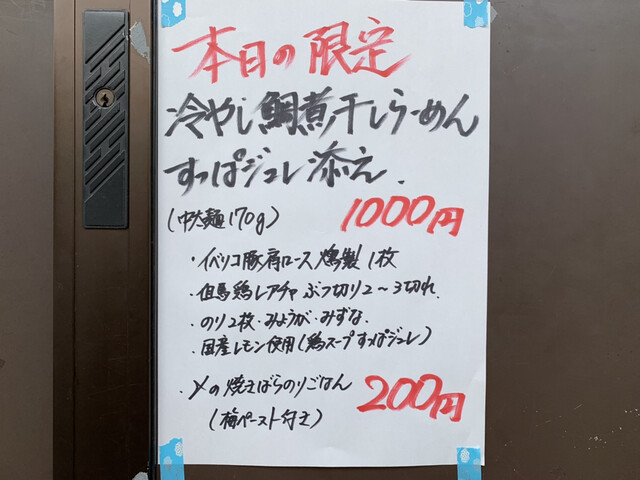 本日の限定
冷やし鯛煮干しらーめん
すっぱジュレ添え.
(中太麺170g) 1000円
・イベリコ豚肩ロース燻製1枚
・但馬鶏レアチャぶつ切り2〜3切れ.
・のり2枚・みょうが・みずな.
・国産レモン使用(鶏スープすっぱジュレ)
・〆の焼きばらのりごはん 200円
(梅ペースト付き)